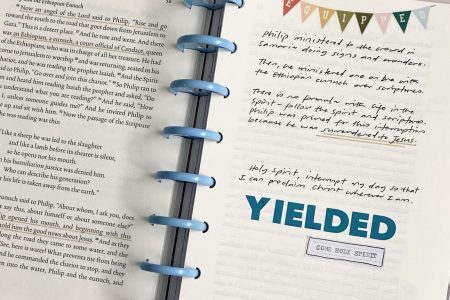 Now an angel of the Lord said to Philip, "Rise and go
toward the south to the road that goes down from Jerusalem to
Gaza." This is a desert place. And he rose and went. And there
was an Ethiopian, a eunuch, a court official of Candace, queen
of the Ethiopians, who was in charge of all her treasure. He had
come to Jerusalem to worship and was returning, seated in his
chariot, and he was reading the prophet Isaiah. And the Spirit
said to Philip, "Go over and join this chariot." So Philip ran to
and heard him reading Isaiah the prophet and asked, "Do
you understand what you are reading?" And he said, "How
I, unless someone guides me?" And he invited Philip to
up and sit with him. Now the passage of the Scripture
he was reading was this:
Like a sheep he was led to the slaughter
and like a lamb before its shearer is silent,
so he opens not his mouth.
his humiliation justice was denied him.
Who can describe his generation?
his life is taken away from the earth."
eunuch said to Philip, "About whom, I ask you, does
say this, about himself or about someone else?"
opened his mouth, and beginning with this
told him the good news about Jesus. And as they
along the road they came to some water, and the
"See, here is water! What prevents me from being
And he commanded the chariot to stop, and they
down into the water, Philip and the eunuch, and
EQUIPPED
Philip ministered to the crowd in
Samaria doing signs and wonders.
Then, he ministered one on one with
the Ethiopian eunuch over scriptures.
There is no formula with life in the
spirit - follow the spirit and scriptures.
Philip was primed for this interruption
because he was surrendered to Jesus.
Holy Spirit, interrupt my day so that
I can proclaim Christ wherever I am.
YIELDED
COME HOLY SPIRIT